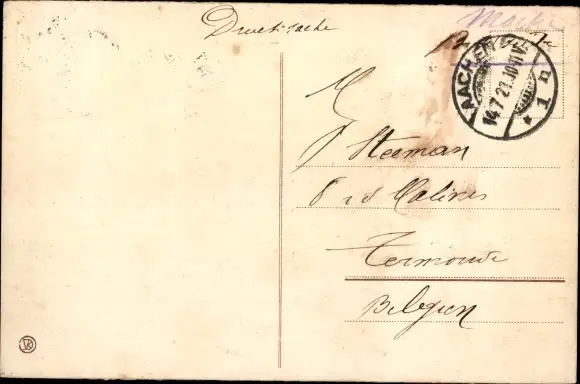 Drucksache
AACHEN
14.7.21.10-11V.
* 1 n
Steeman
8 rd Malines
Termonde
Belgien